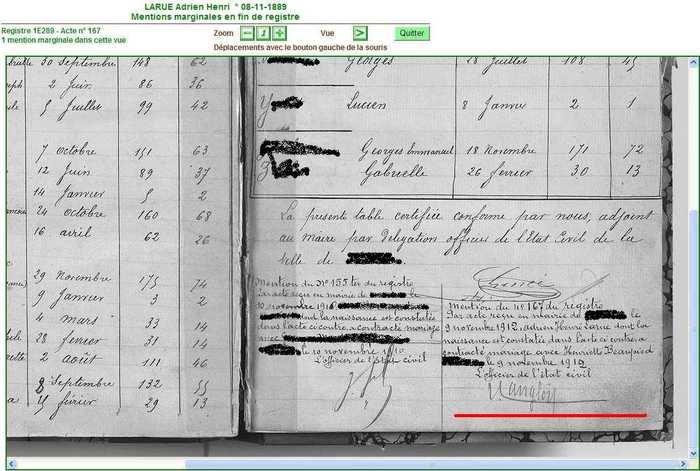 LARUE Adrien Henri ° 08-11-1889
Mentions marginales en fin de registre
Registre 1E289 - Acte n° 167
1 mention marginale dans cette vue
Zoom 1 Vue > Quitter
Déplacements avec le bouton gauche de la souris
30 Septembre 148 62
2 Juin 86 36
5 Juillet 99 42
7 octobre 151 63
12 Juin 89 37
14 Janvier 5 2
24 octobre 160 68
16 avril 62 26
29 Novembre 175 74
9 Janvier 3 2
4 mars 33 14
28 février 31 14
2 août 111 46
8 Septembre 132 55
février 29 13
Georges 28 Juillet 108 45
Y Lucien 8 Janvier 2 1
Georges Emmanuel 18 Novembre 171 72
Gabrielle 26 février 30 13
La présente table certifiée conforme par nous, adjoint
au Maire par Délégation officier de l'Etat Civil de la
Ville de
mention du N° 155 ter du registre
Par acte reçu en mairie de le
10 novembre
dont la naissance est constatée
dans l'acte ci contre, a contracté mariage
avec
le 10 novembre
L'officier de l'état civil
mention du n° 167 du registre
Par acte reçu en mairie de le
9 novembre 1912, adrien Henri Larue dont la
naissance est constatée dans l'acte ci contre a
contracté mariage avec Henriette Beaupied
le 9 novembre 1912
L'officier de l'état civil